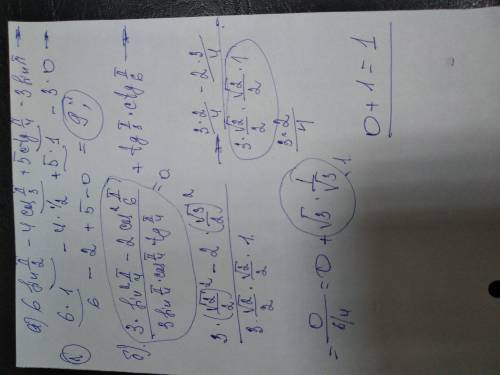 а) 6 sin π/2 - 4 cos π/3 + 5 ctg π/4 - 3 sin π →
→ 6·1 - 4·1/2 + 5·1 - 3·0 →
6 - 2 + 5 - 0 = 9
б) (3·sin² π/4 - 2 cos² π/6)/(3 sin π/4·cos π/4·tg π/4) + tg π/3·ctg π/6 →
= 0
(3·(√2/2)² - 2·(√3/2)²)/(3·√2/2·√2/2·1) → (3·2/4 - 2·3/4)/(3·√2/2·√2/2·1)
3·2/4
= 0/(6/4) = 0 + √3·1/√3
1.
0 + 1 = 1